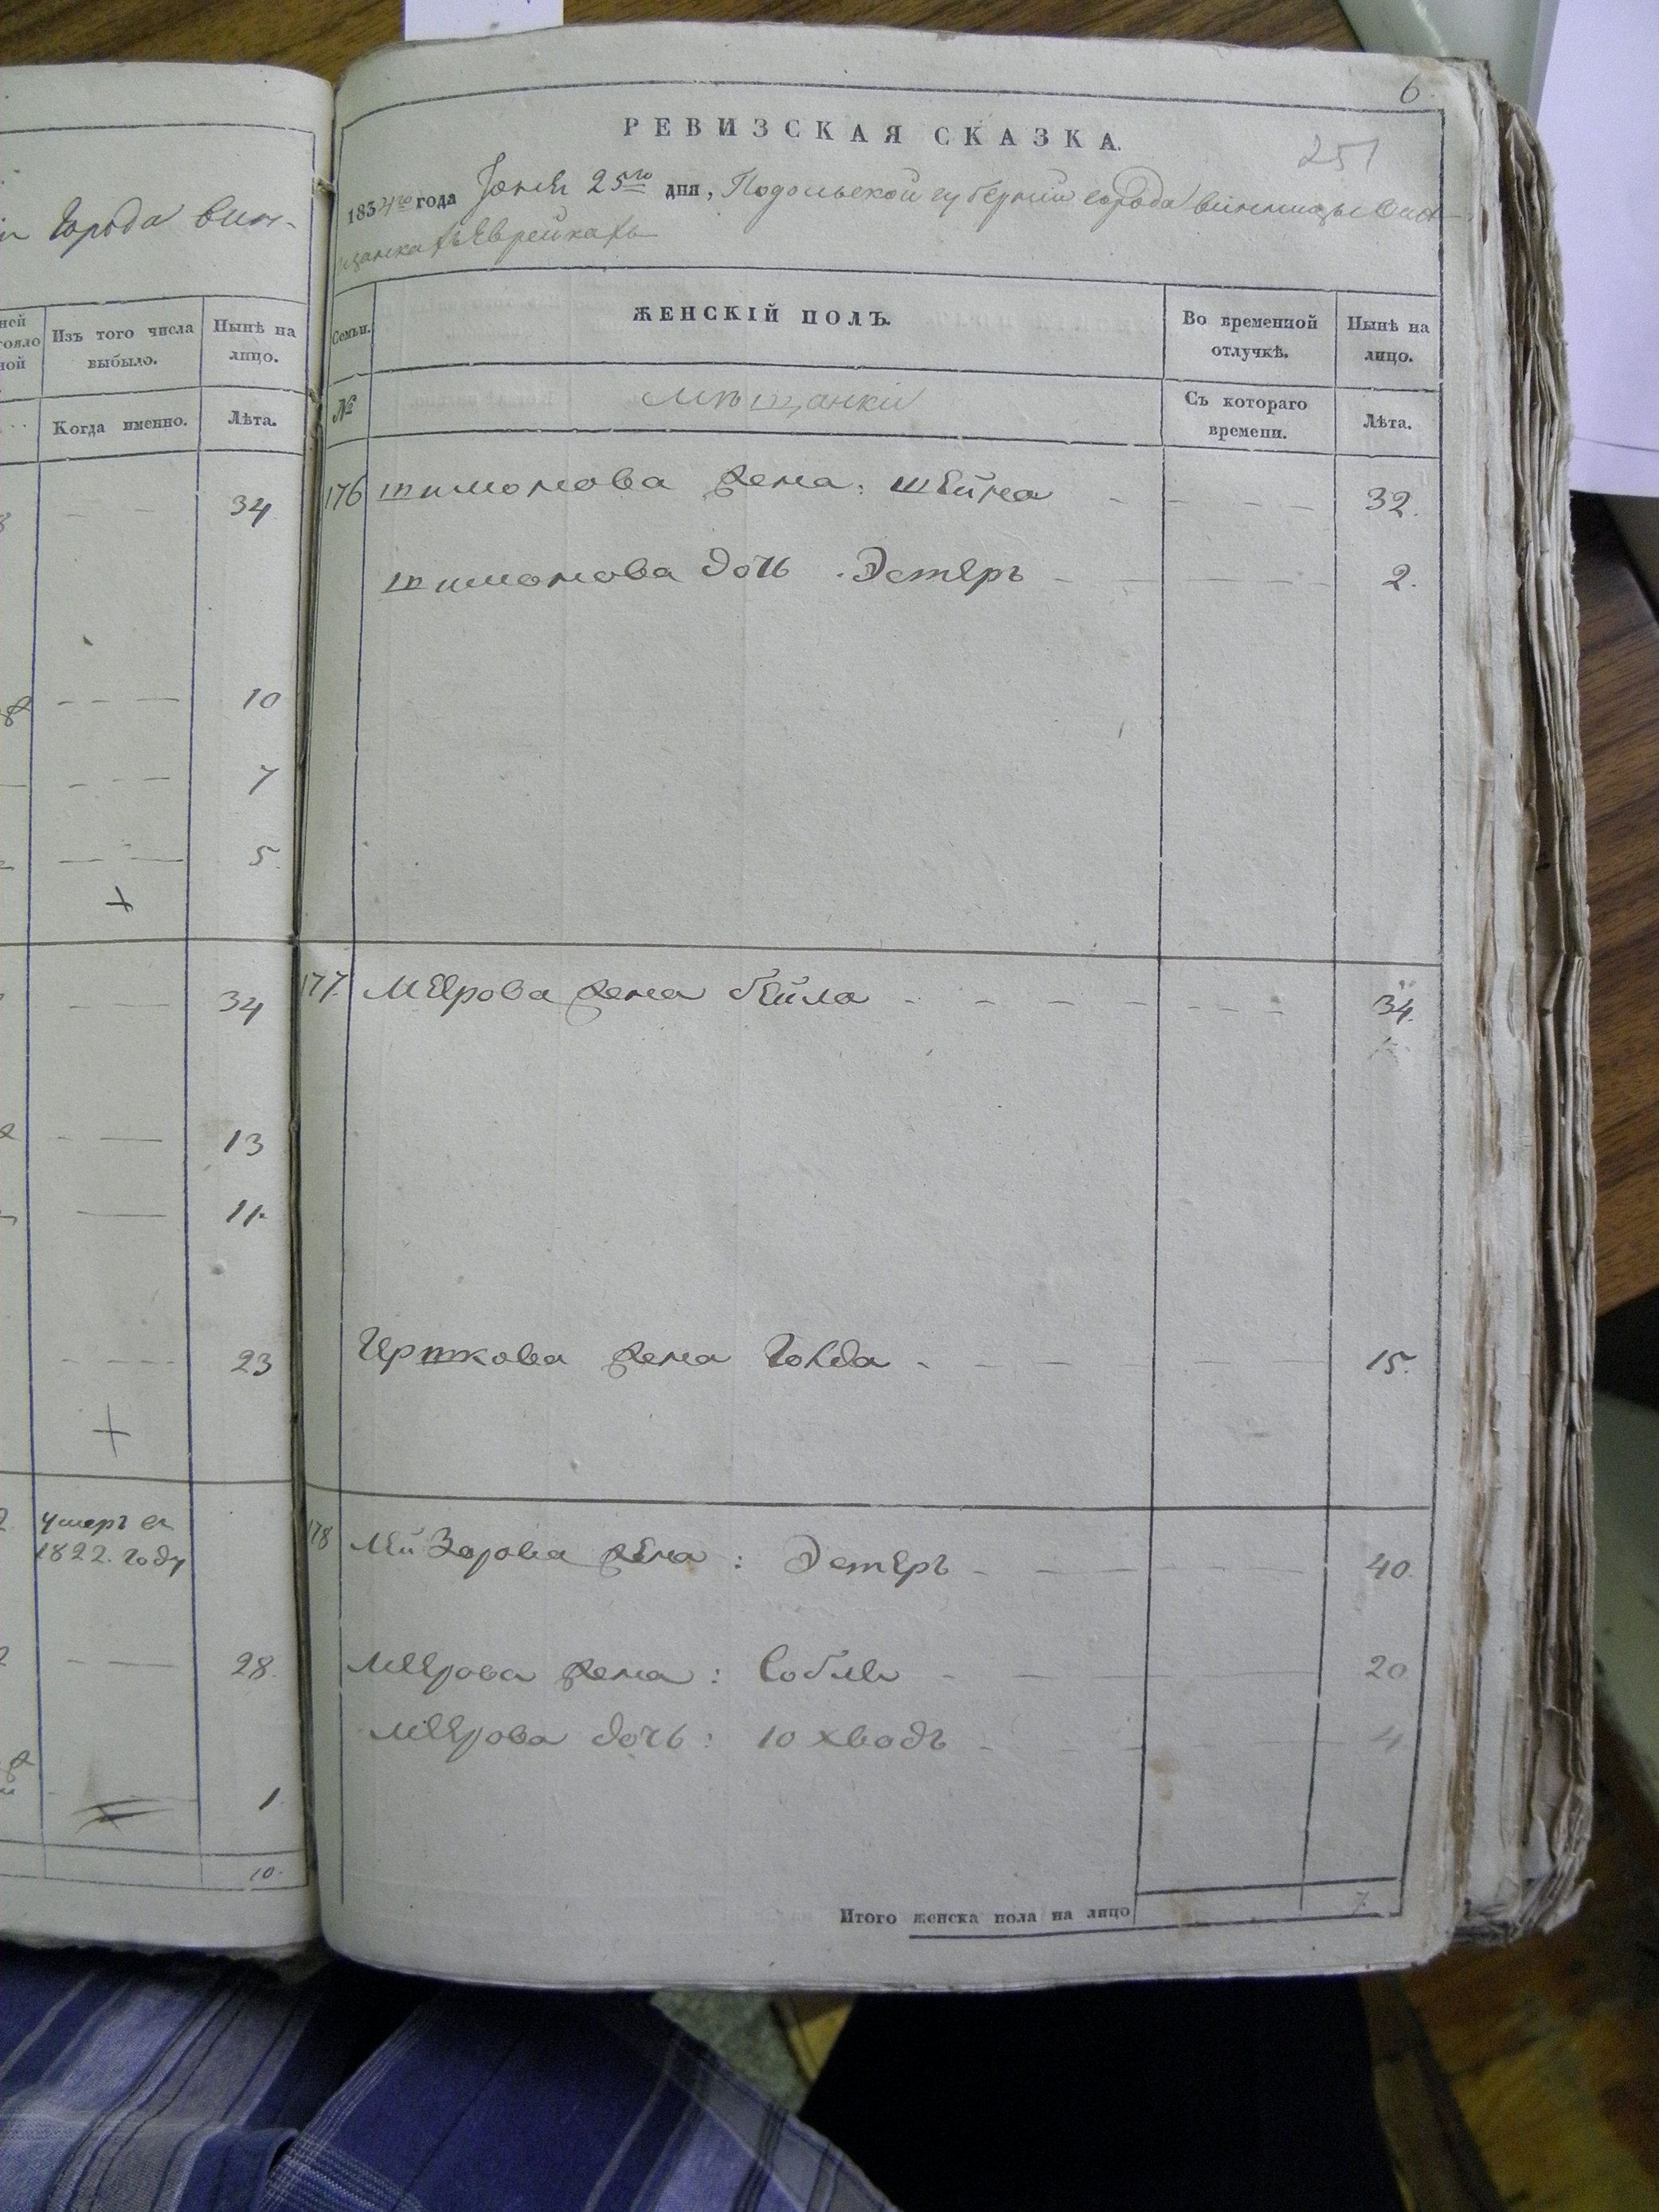 Города Вин-
ней
Изъ того числа выбыло.
Нынѣ на лицо.
Когда именно.
Лѣта.
34
10
7
5
+
34
13
11.
23
+
умеръ въ
1822. году
28.
1
10.
6.
251
РЕВИЗСКАЯ СКАЗКА.
1834го года Іюня 25го дня, Подольской губерніи города Винницы
Еврейкахъ
Семьи.
ЖЕНСКІЙ ПОЛЪ.
Во временной отлучкѣ.
Нынѣ на лицо.
№
Мѣщанки
Съ котораго времени.
Лѣта.
176 шимонова жена: шейна 32.
шимонова дочь Эстеръ 2.
177. Меерова жена бейла 34.
Гершкова жена Голда 15.
178 Лейзорова жена: Эстеръ 40.
Меерова жена: Собля 20
Меерова дочь: юхводъ 4
Итого женска пола на лицо 7.